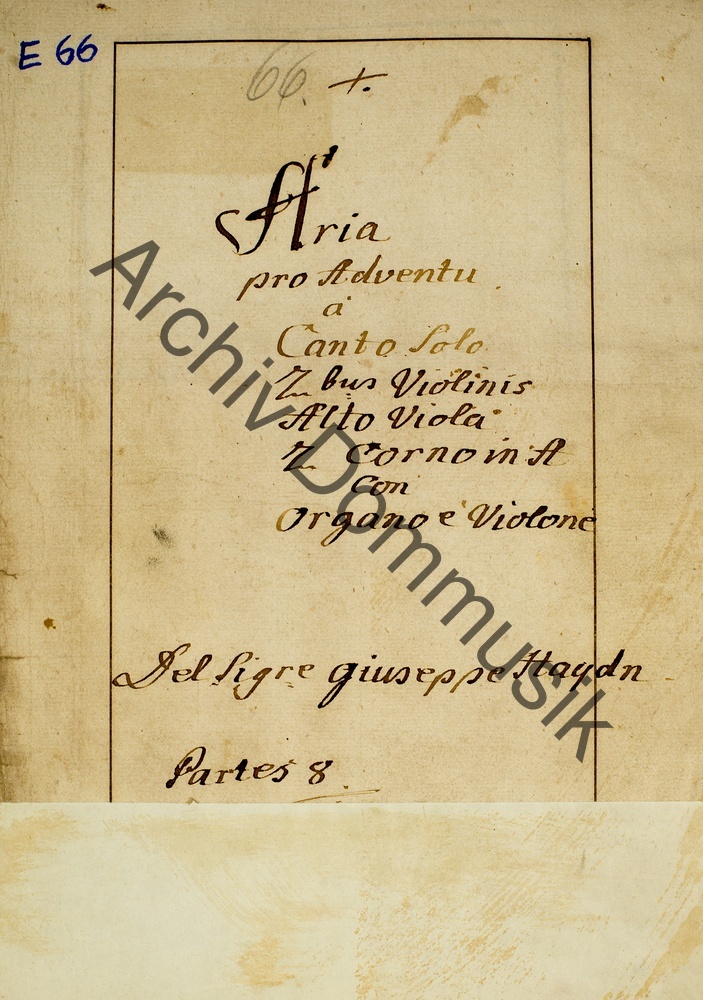 E 66
66. +.
Aria
pro Adventu.
à
Canto Solo
2 bus Violinis
Alto Viola
2 Corno in A
con
Organo è Violone
Del Sigre Giuseppe Haydn
Partes 8.
Archiv Dommusik